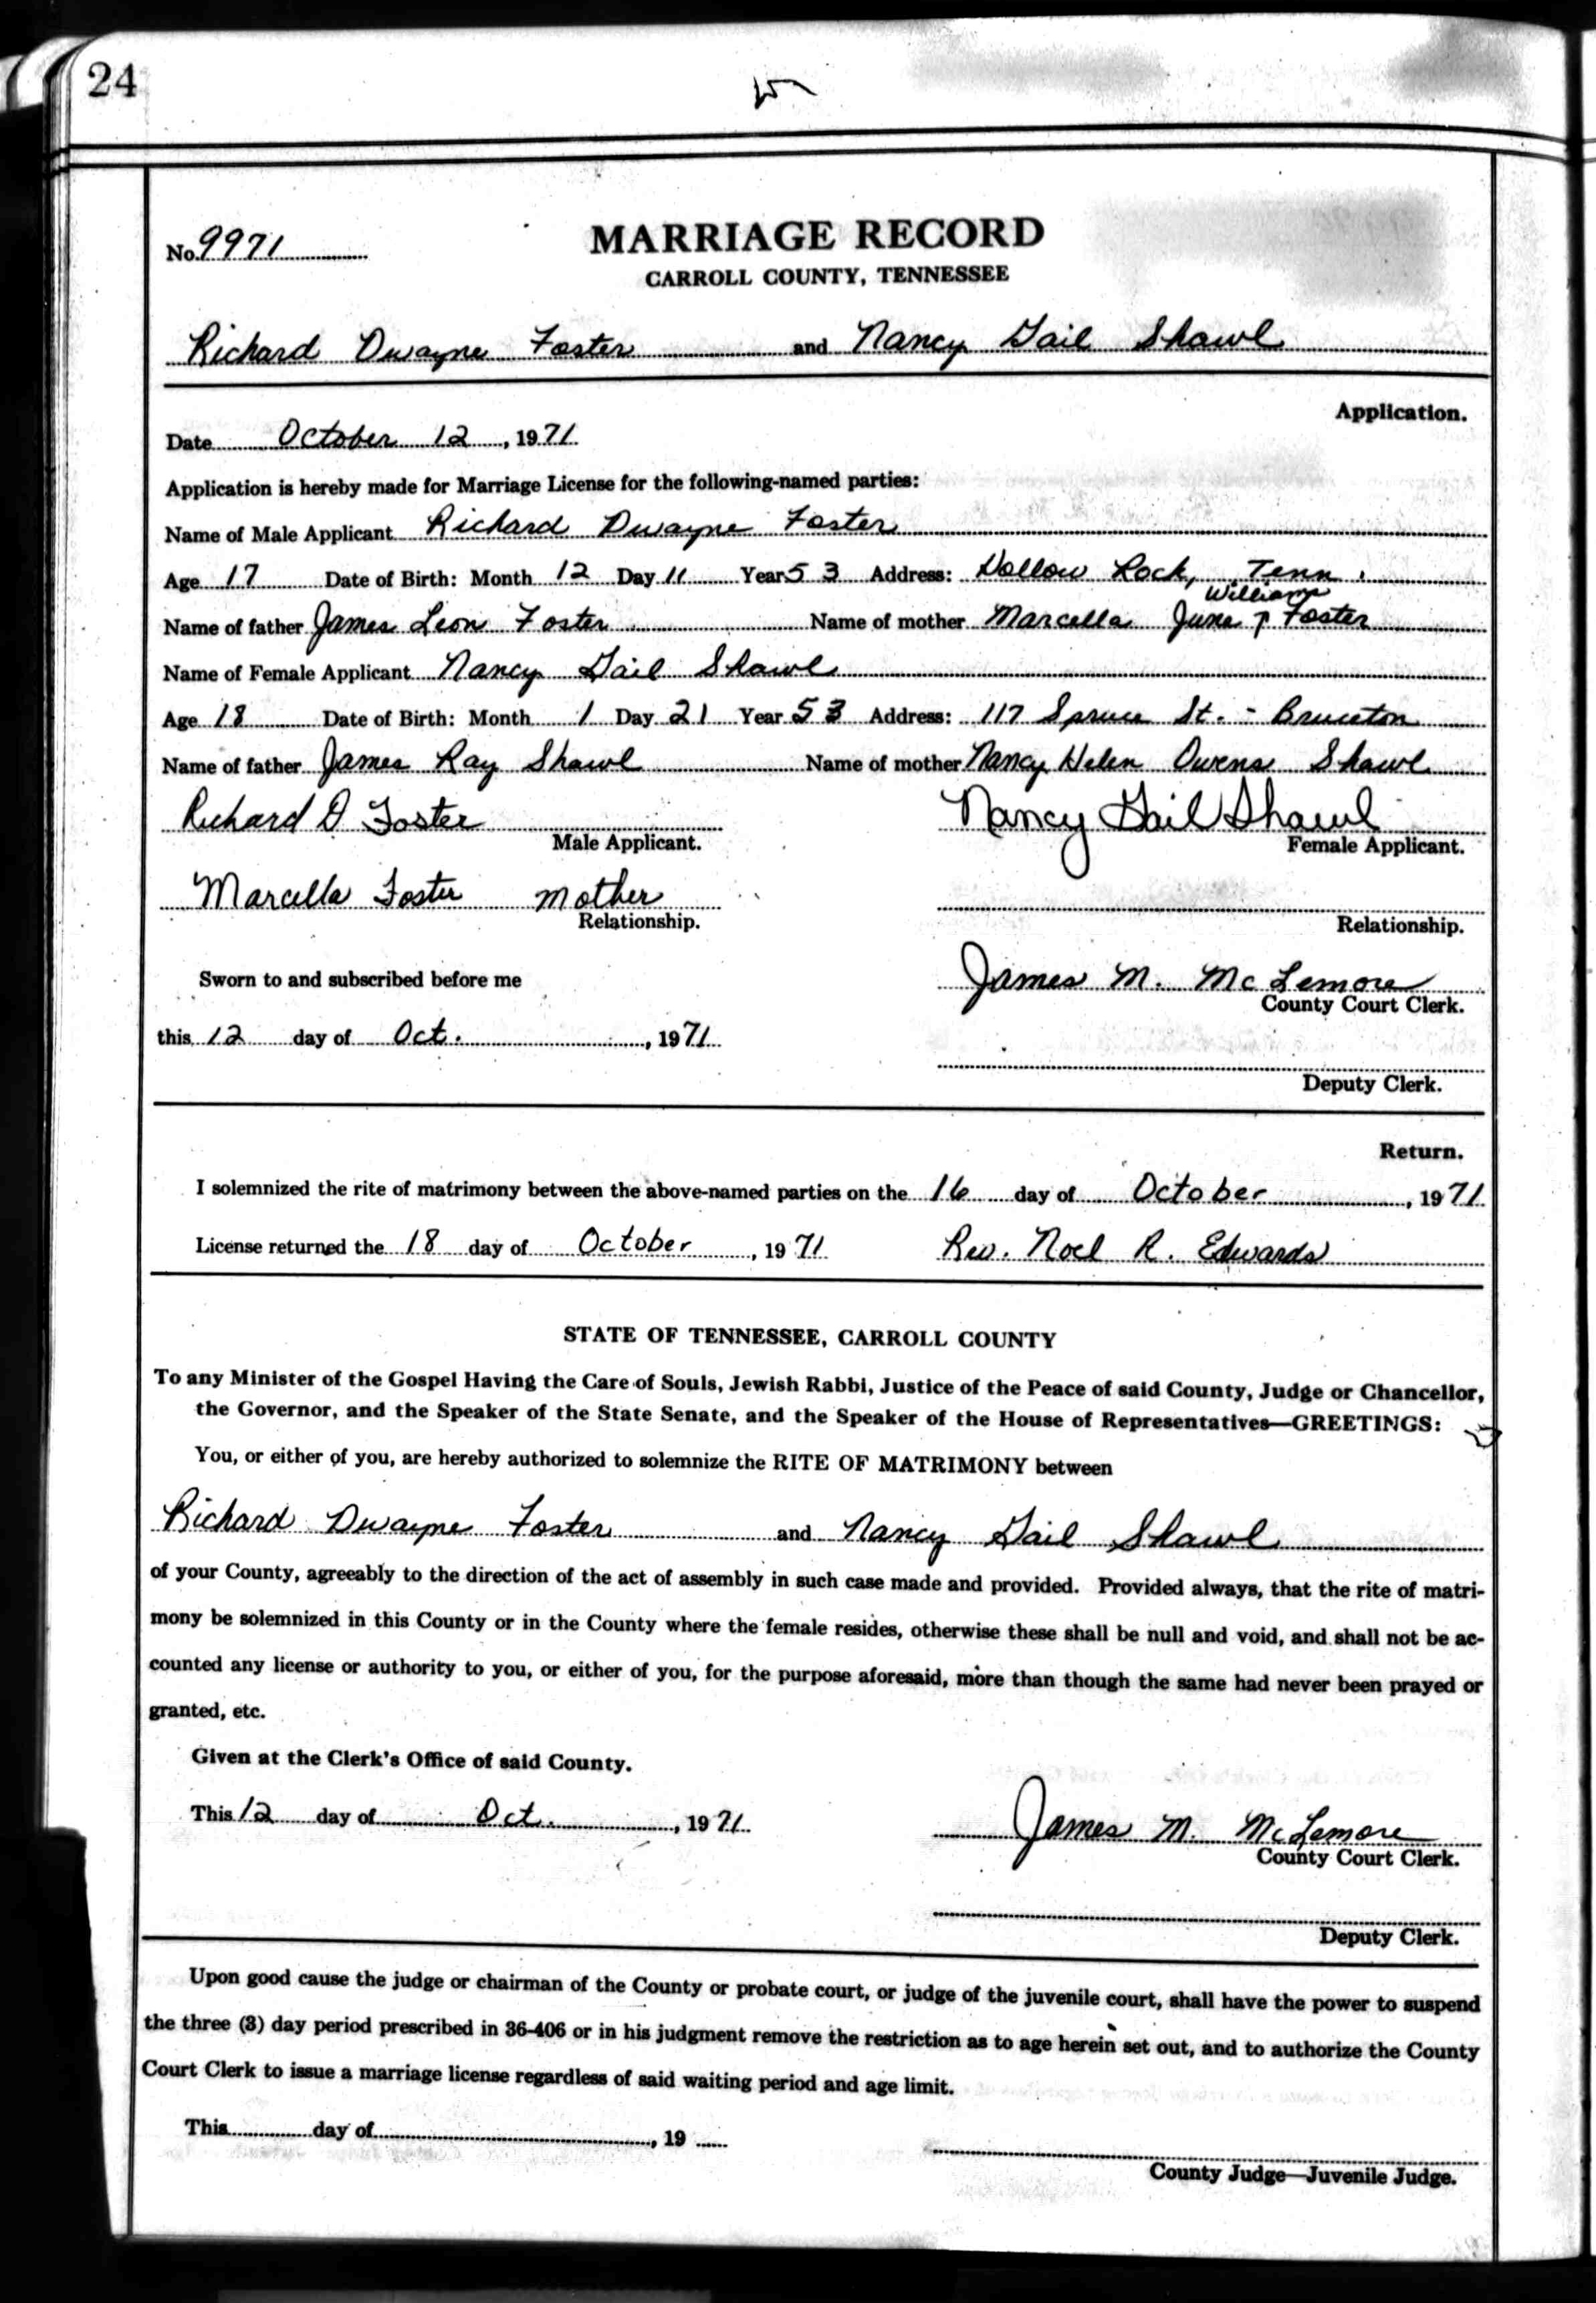 24
No. 9971
MARRIAGE RECORD
CARROLL COUNTY, TENNESSEE
Richard Dwayne Foster and Nancy Gail Shawl
Application.
Date October 12, 1971
Application is hereby made for Marriage License for the following-named parties:
Name of Male Applicant Richard Dwayne Foster
Age 17 Date of Birth: Month 12 Day 11 Year 53 Address: Hollow Rock, Tenn.
Williams
Name of father James Leon Foster Name of mother Marcella June ↑ Foster
Name of Female Applicant Nancy Gail Shawl
Age 18 Date of Birth: Month 1 Day 21 Year 53 Address: 117 Spruce St. - Bruceton
Name of father James Ray Shawl Name of mother Nancy Helen Owens Shawl
Richard D Foster Nancy Gail Shawl
Male Applicant. Female Applicant.
Marcella Foster mother
Relationship. Relationship.
Sworn to and subscribed before me James M. McLemore
County Court Clerk.
this 12 day of Oct., 1971
Deputy Clerk.
Return.
I solemnized the rite of matrimony between the above-named parties on the 16 day of October, 1971
License returned the 18 day of October, 1971 Rev. Noel R. Edwards
STATE OF TENNESSEE, CARROLL COUNTY
To any Minister of the Gospel Having the Care of Souls, Jewish Rabbi, Justice of the Peace of said County, Judge or Chancellor,
the Governor, and the Speaker of the State Senate, and the Speaker of the House of Representatives—GREETINGS:
You, or either of you, are hereby authorized to solemnize the RITE OF MATRIMONY between
Richard Dwayne Foster and Nancy Gail Shawl
of your County, agreeably to the direction of the act of assembly in such case made and provided. Provided always, that the rite of matri-
mony be solemnized in this County or in the County where the female resides, otherwise these shall be null and void, and shall not be ac-
counted any license or authority to you, or either of you, for the purpose aforesaid, more than though the same had never been prayed or
granted, etc.
Given at the Clerk's Office of said County.
This 12 day of Oct., 1971 James M. McLemore
County Court Clerk.
Deputy Clerk.
Upon good cause the judge or chairman of the County or probate court, or judge of the juvenile court, shall have the power to suspend
the three (3) day period prescribed in 36-406 or in his judgment remove the restriction as to age herein set out, and to authorize the County
Court Clerk to issue a marriage license regardless of said waiting period and age limit.
This day of , 19
County Judge—Juvenile Judge.